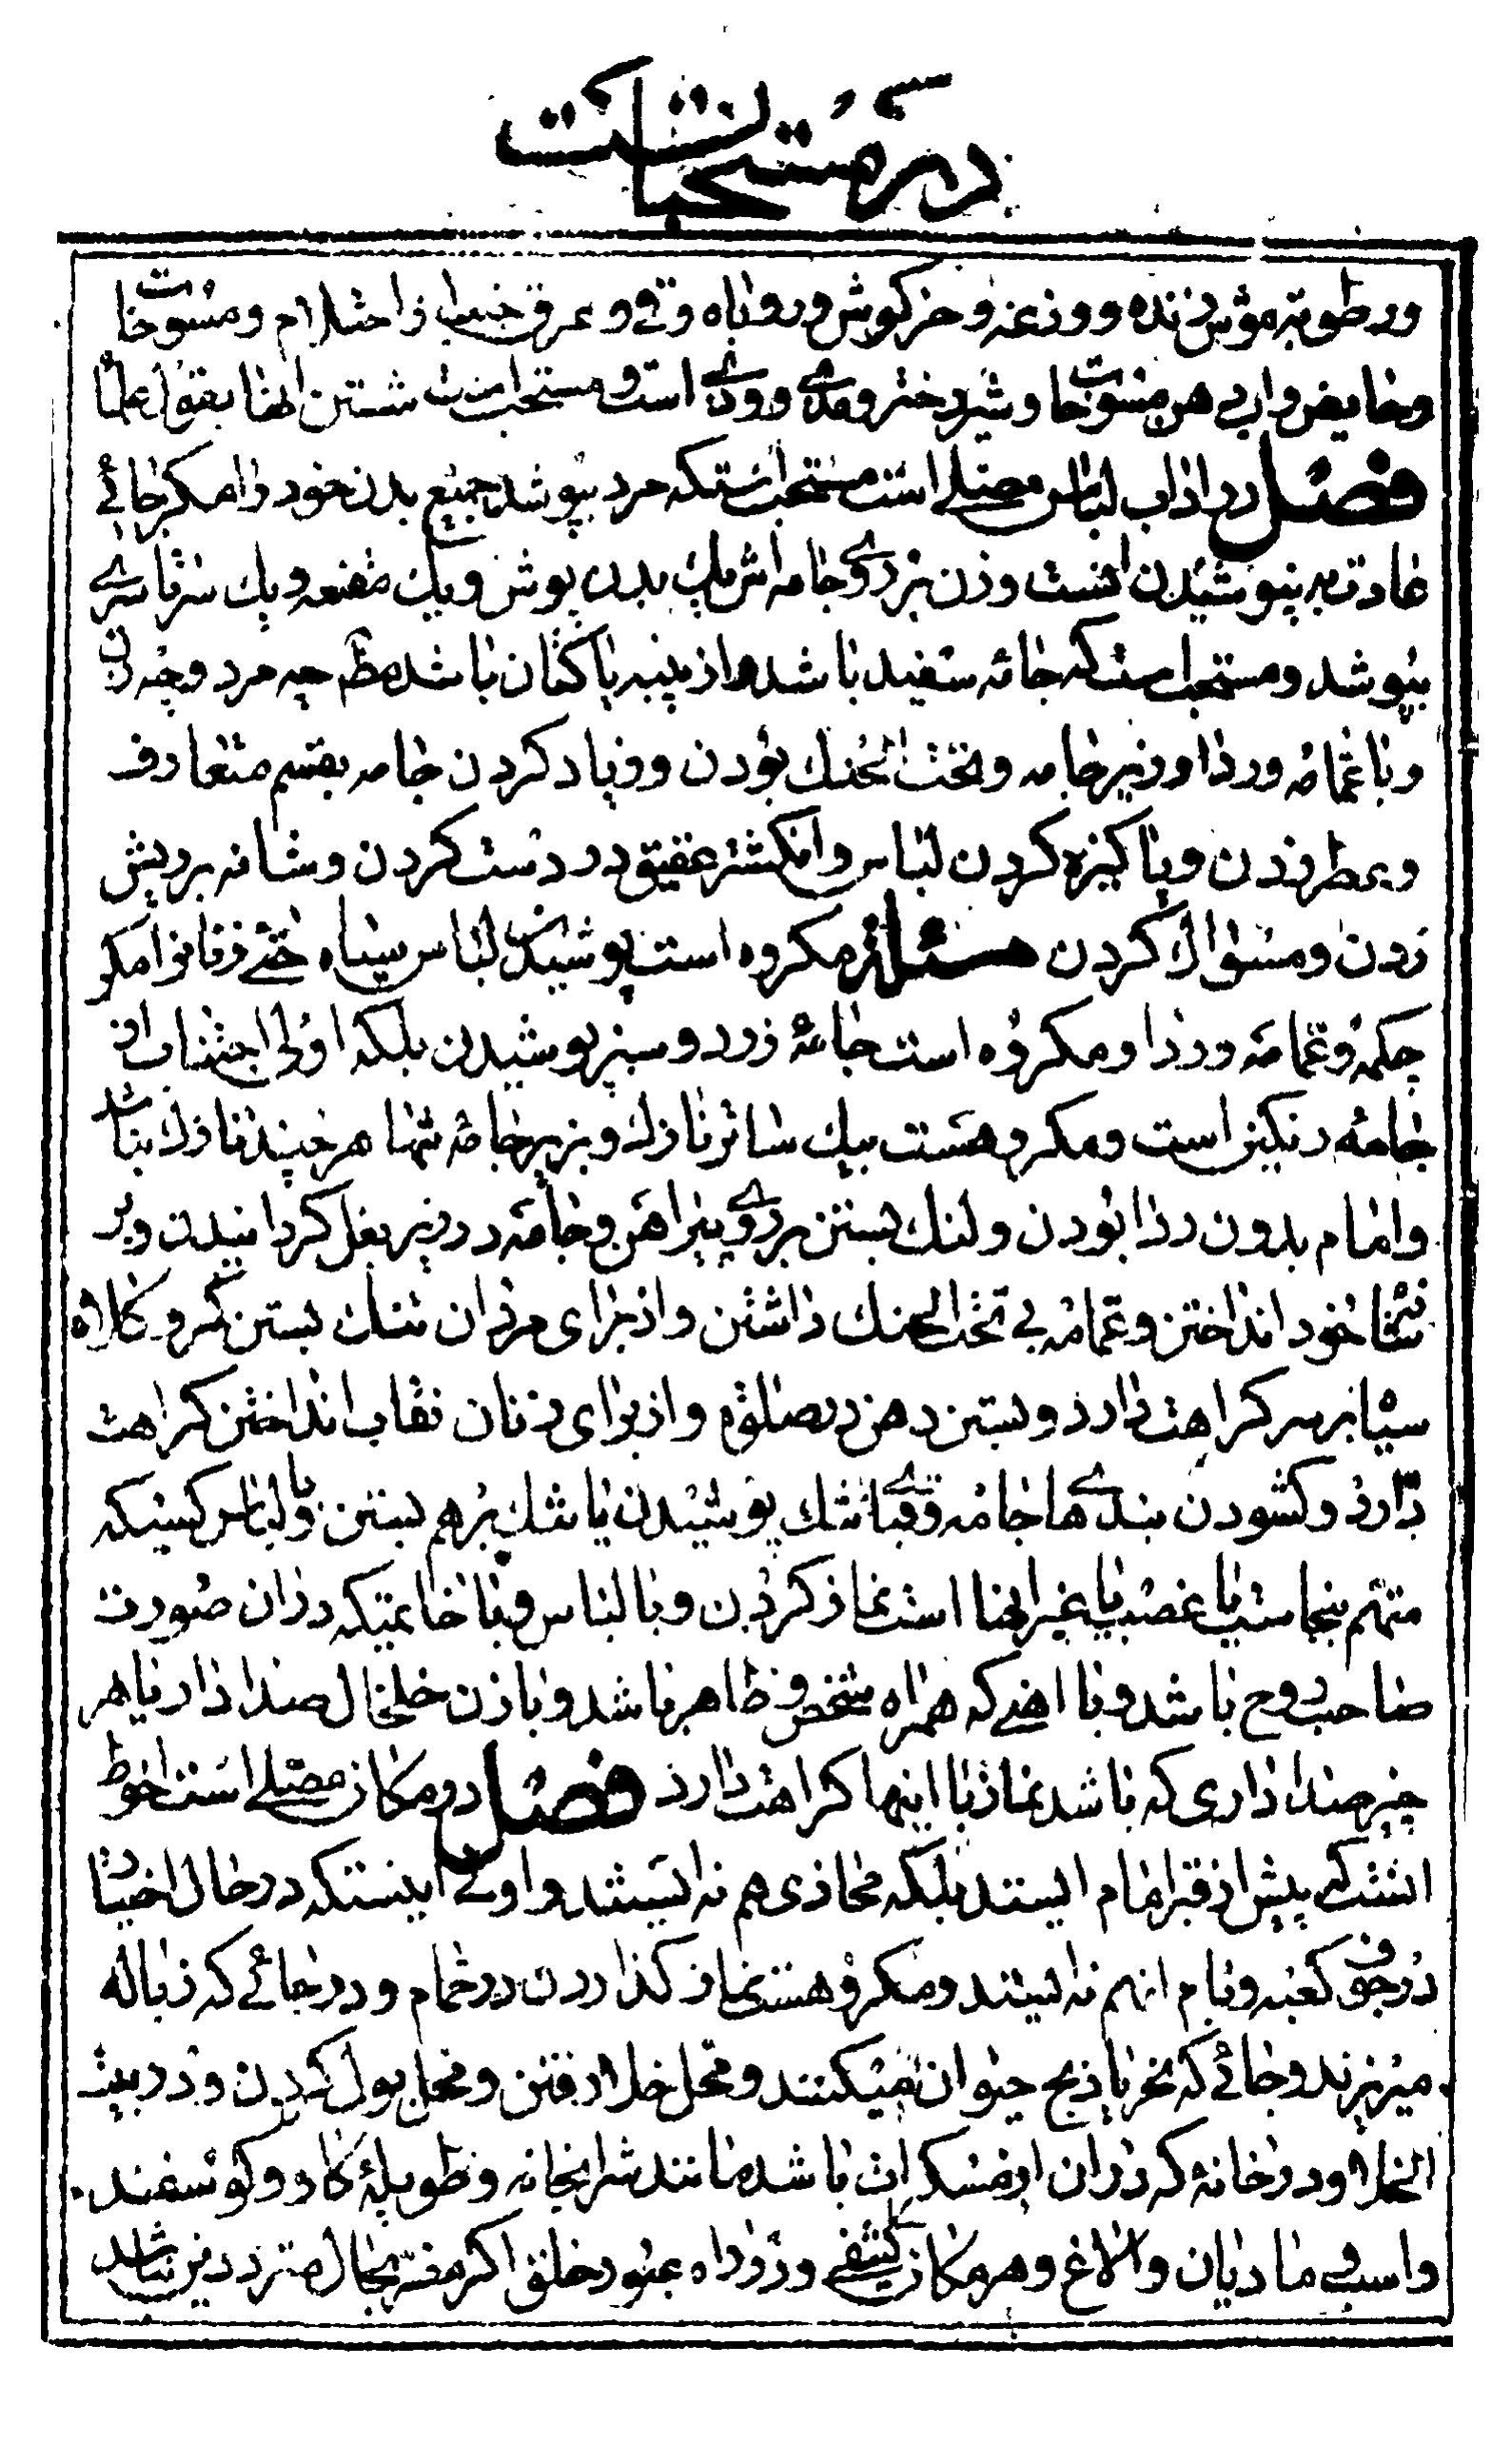 در مستحبات است
ورطوبة موش زنده ووزغه وخرکوش وروباه وقی وعرق جنب از احتلام ومسوخات
وحایض وابی هر مسوخات وشیر دختر ومذی وودی است ومستحب است شستن اینها بقول علما
فصل در اداب لباس مصلی است مستحب استکه مرد بپوشد جمیع بدن خود را مکر جائی
عادت به پوشیدن انست وزن بر روی جامه اش یک بدن پوش ویک مقنعه ویک سرتاسری
بپوشد ومستحب است که جامه سفید باشد واز پنبه یا کتان باشد مط چه مرد وچه زن
وبا عمامه وردا وزیر جامه وتحت الحنک بودن وزیاد کردن جامه بقسم متعارف
وعطر زدن وپاکیزه کردن لباس وانکشتر عقیق در دست کردن وشانه بریش
زدن ومسواک کردن مسئلة مکروه است پوشیدن لباس سیاه حتی زنانرا مکر
چکمه وعمامه وردا ومکروه است جامهٔ زرد وسبز پوشیدن بلکه اولی اجتناب از
جامهٔ رنکین است ومکروهست بیک ساتر نازک وبزیرجامه تنها هر چند نازک نباشد
وامام بدون ردا بودن ولنک بستن بر روی پیراهن وجامه در زیر بغل کردانیدن وبر
شانه‌ها خود انداختن وعمامه بی تحت الحنک داشتن واز برای مردان تنک بستن کمر وکلاه
سیاه بر سر کراهت دارد وبستن دهن در صلوة واز برای زنان نقاب انداختن کراهت
دارد وکشودن بندهای جامه وقبای تنک پوشیدن یا شال برهم بستن وبا لباس کسیکه
متهم بنجاست یا غصب یا غیر اینها است نماز کردن وبا لباس وبا خاتمیکه در ان صورت
صاحب روح باشد وبا اهنی که همراه شخص وظاهر باشد وبا زن خلخال صدا دار یا هر
چیز صدا داری که باشد نماز با اینها کراهت دارد فصل در مکان مصلی است احوط
انست که پیش از قبر امام ایستد بلکه محاذی هم نه ایستد واولی اینستکه در حال اختیار
در جوف کعبه وبام انهم نه ایستد ومکروهست نماز کذاردن در حمام ودر جائی که زباله
میریزند وجائی که نحر یا ذبح حیوان میکنند ومحل خلا رفتن ومحل بول کردن ودر بیت
الخلا ودر خانه که در ان از مسکرات باشد مانند شرابخانه وطویلهٔ کاو وکوسفند
واسب ومادیان والاغ وهر مکان کثیفی ودر راه عبور خلق اکر مضر بحال مترددین نباشد